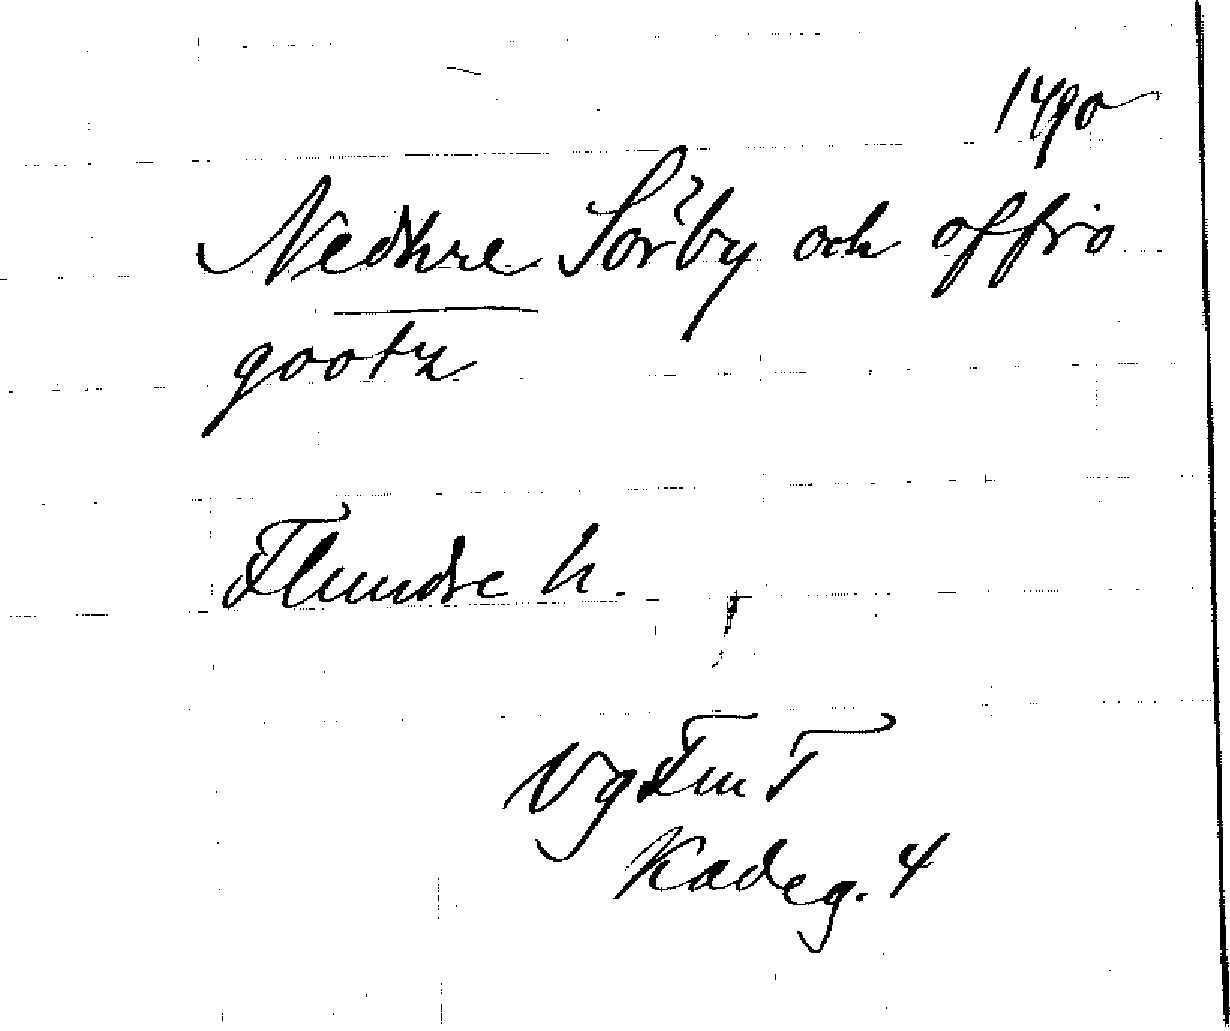 1490
Nedhre Sörby och offrö
gootz
Flundre h.
Vg Fm T
Kadeg. 4